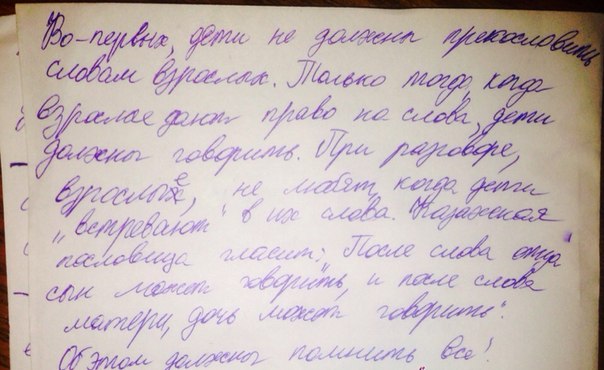 Во-первых, дети не должны прекословить
словам взрослых. Только тогда, когда
взрослые дают право на слова, дети
должны говорить. При разговоре,
взрослые, не любят, когда дети
„встревают" в их слова. Казахская
пословица гласит: „После слова отца
сын может говорить, и после слова
матери, дочь может говорить".
Об этом должны помнить все!